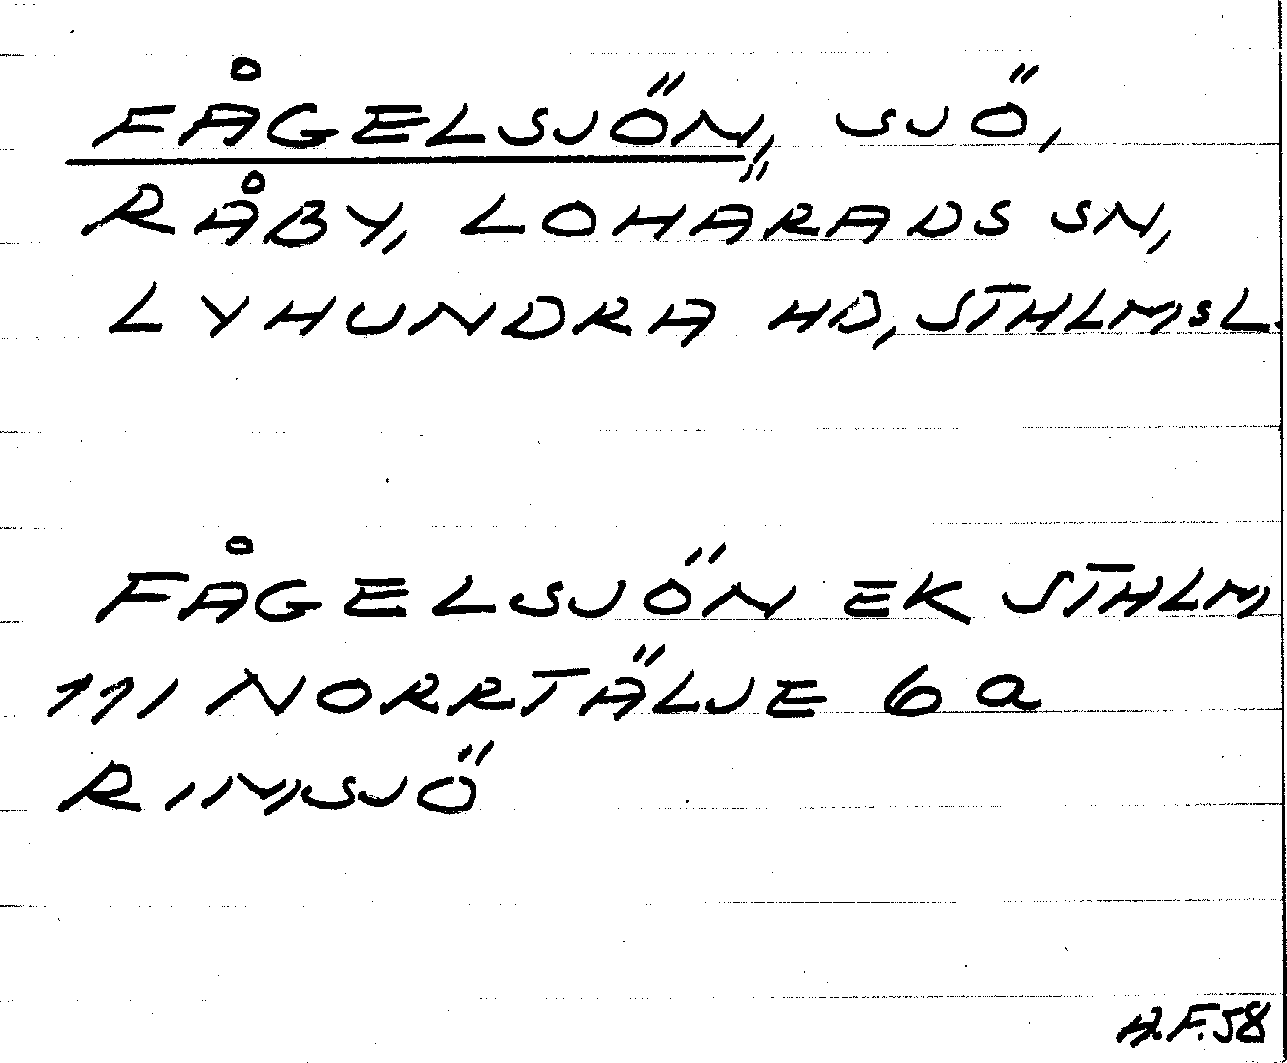 FÅGELSJÖN, SJÖ,
RÅBY, LOHÄRADS SN,
LYHUNDRA HD, STHLMSL.
FÅGELSJÖN EK STHLM
111 NORRTÄLJE 6a
RIMSJÖ
H.F.58